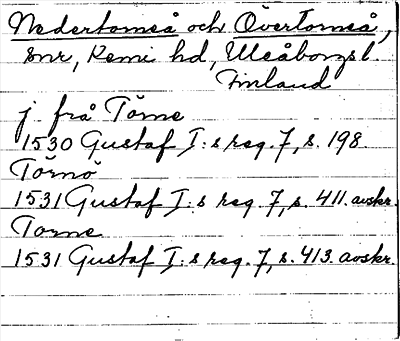 Nedertorneå och Övertorneå,
snr, Kemi hd, Uleåborgs l.
Finland
j. från Törne
1530 Gustaf I:s reg. 7, s. 198.
Törnö
1531 Gustaf I:s reg. 7, s. 411. avskr.
Torne
1531 Gustaf I:s reg. 7, s. 413. avskr.